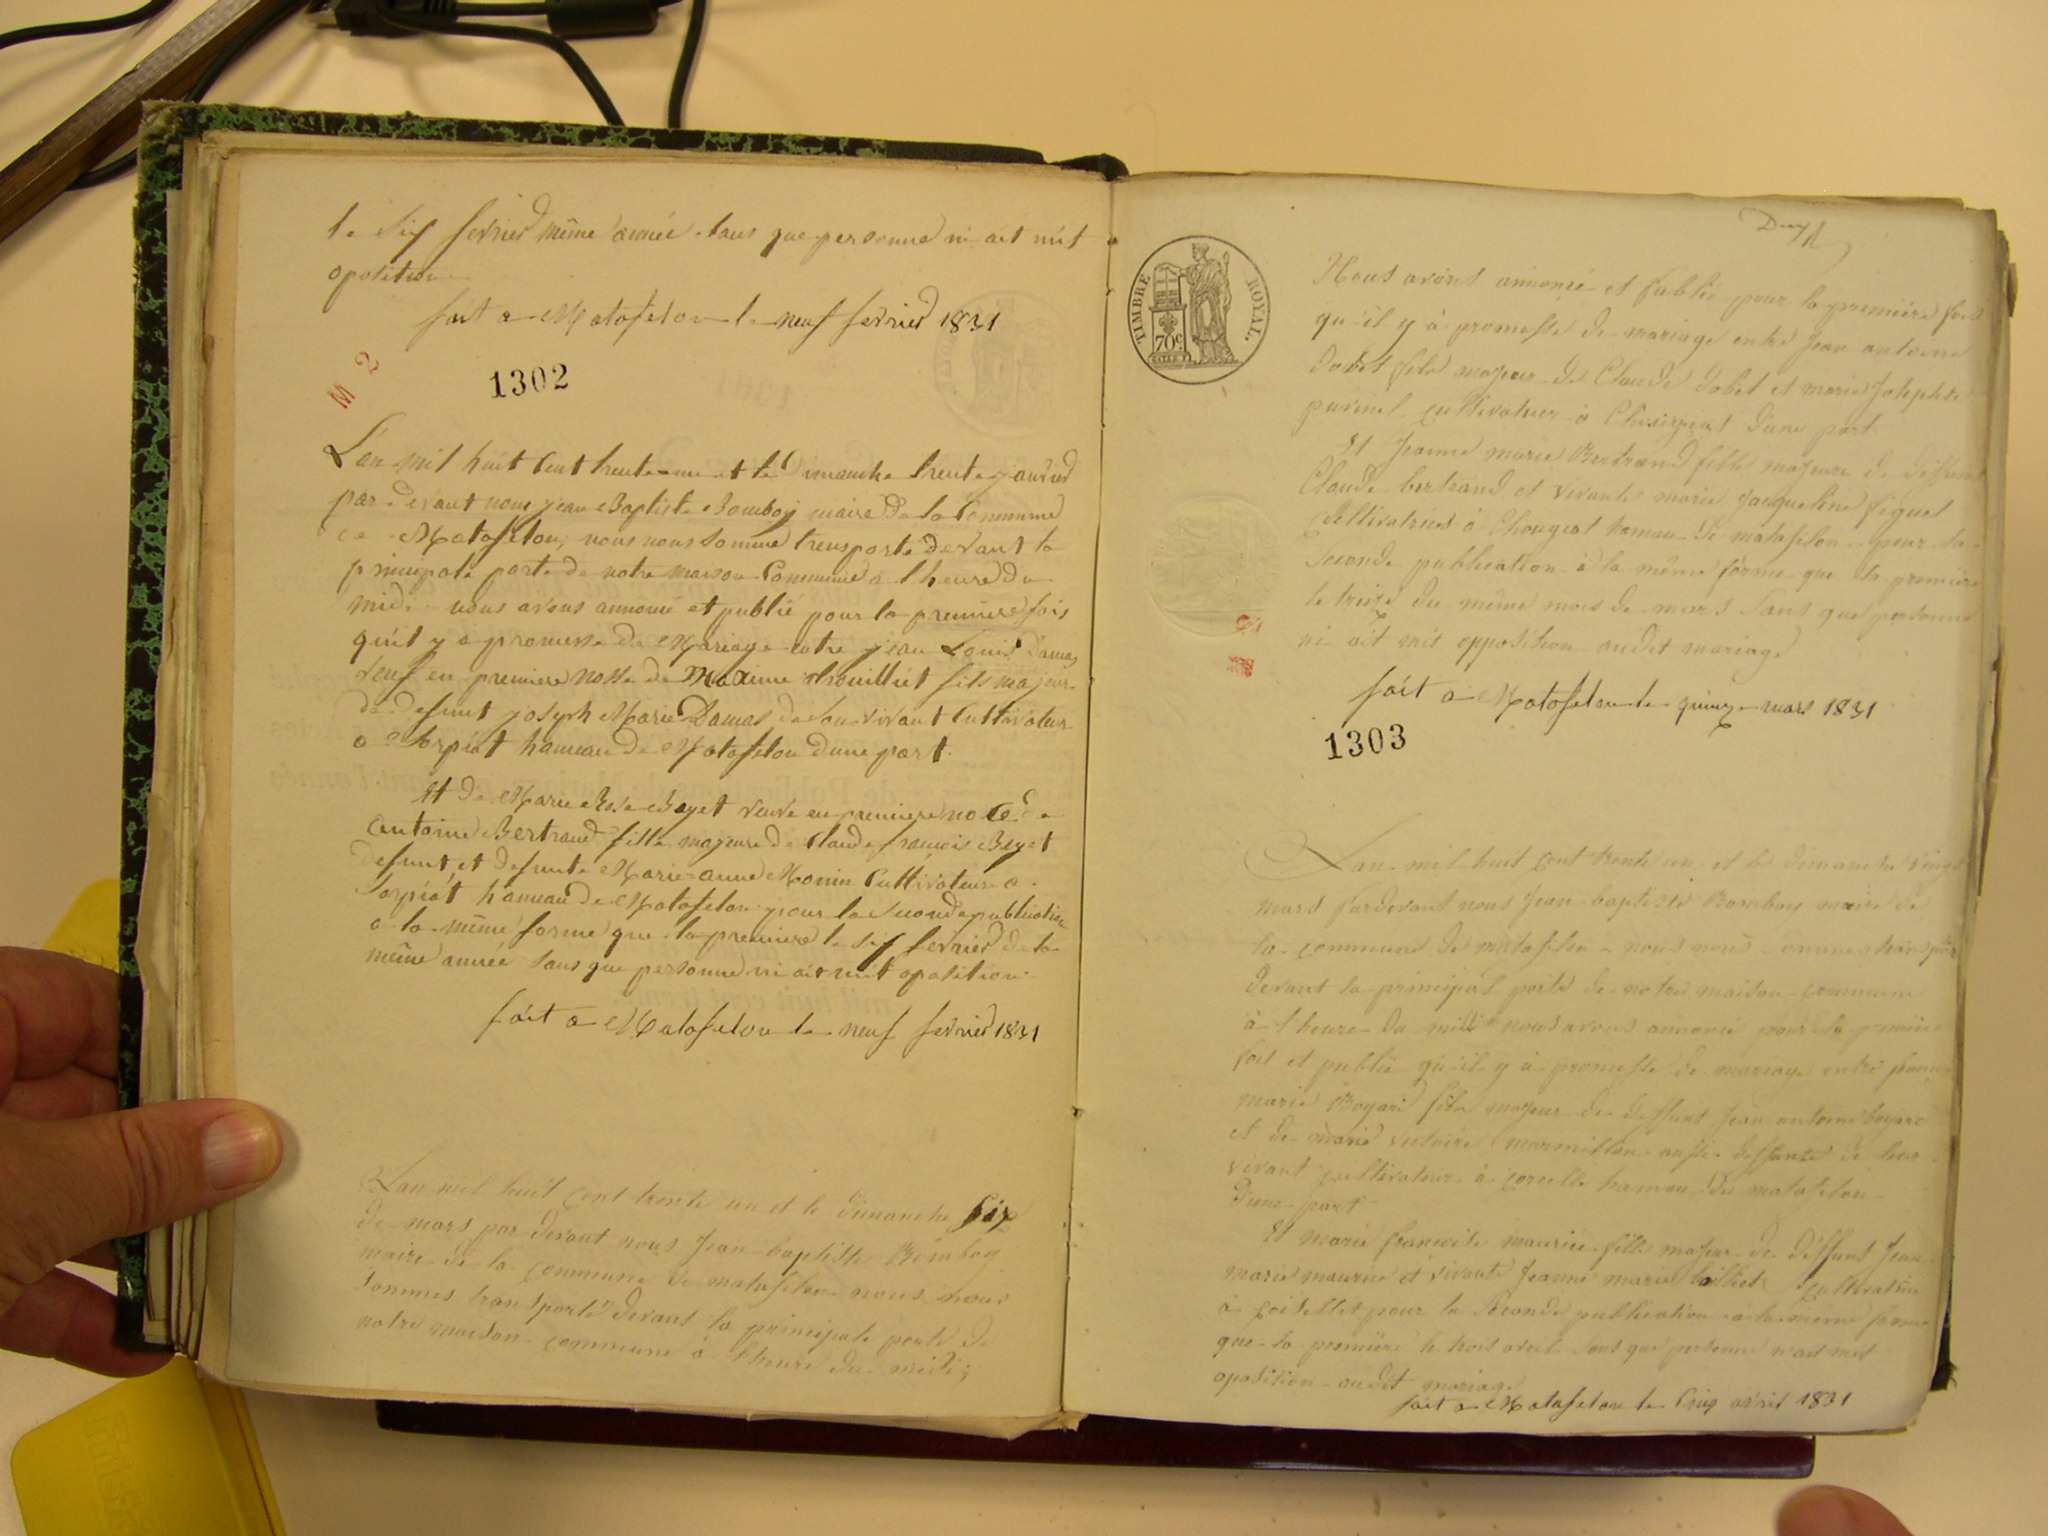 le six fevrier même année sans que personne ni ait mit
oposition
fait a Matafelon le neuf fevrier 1831
M 2
1302
L'an mil huit cent trente un et le Dimanche trente janvier
par devant nous jean Baptiste Bomboy maire de la Commune
de Matafelon, nous nous somme transporté devant la
principale porte de notre maison Commune a l'heure du
midi nous avons annoncé et publié pour la première fois
qu'il y a promesse de Mariage entre jean Louis Damas
veuf en premiere nosse de Maxime fils majeur
de defunt joseph Marie Damas de son vivant Cultivateur
a Sorpiat hameau de Matafelon d'une part.
Et de Marie Rose Beyet veuve en premiere noce de
antoine Bertrand fille majeure de Claude francois Beyet
defunt, et defunte Marie-anne Monin Cultivateur a
Sorpiat hameau de Matafelon pour la seconde publication
a la même forme que la premiere le six fevrier de la
même année sans que personne ni ait mit oposition
fait a Matafelon le neuf fevrier 1831
L'an mil huit cent trente un et le dimanche six
de mars par devant nous Jean baptiste Bomboy
maire de la commune de matafelon nous nous
sommes transporté devant la principale porte de
notre maison commune à l'heure du midi;
TIMBRE ROYAL.
70c.
Nous avons annoncé et publié pour la première fois
qu'il y à promesse de mariage entre Jean antoine
Dobet fils majeur de Claude Dobet et marie Josephte
cultivateur à d'une part
Et Jeanne marie Bertrand fille majeure de deffunt
Claude bertrand et vivante marie Jacqueline
cultivatrice à Chougeat hameau de matafelon pour la
seconde publication à la même forme que la première
le treize du même mois de mars sans que personne
ni ait mis opposition audit mariage
fait a Matafelon le quinze mars 1831
1303
L'an mil huit cent trente un et le dimanche vingt
mars pardevant nous Jean baptiste Bomboy maire de
la commune de matafelon nous nous sommes transporté
devant la principal porte de notre maison commune
à l'heure du midi nous avons annoncé pour la première
fois et publié qu'il y à promesse de mariage entre
marie Boyard fils majeur de deffunt Jean antoine boyard
et de marie victoire marmillon aussi deffunte de leur
vivant cultivateur à corcelle hameau de matafelon
d'une part
Et marie francoise maurice fille majeur de deffunt Jean
marie maurice et vivante Jeanne marie cultivatrice
à coiselet pour la seconde publication à la meme forme
que la première le trois avril sans que personne n'ait mit
oposition audit mariage
fait a Matafelon le cinq avril 1831